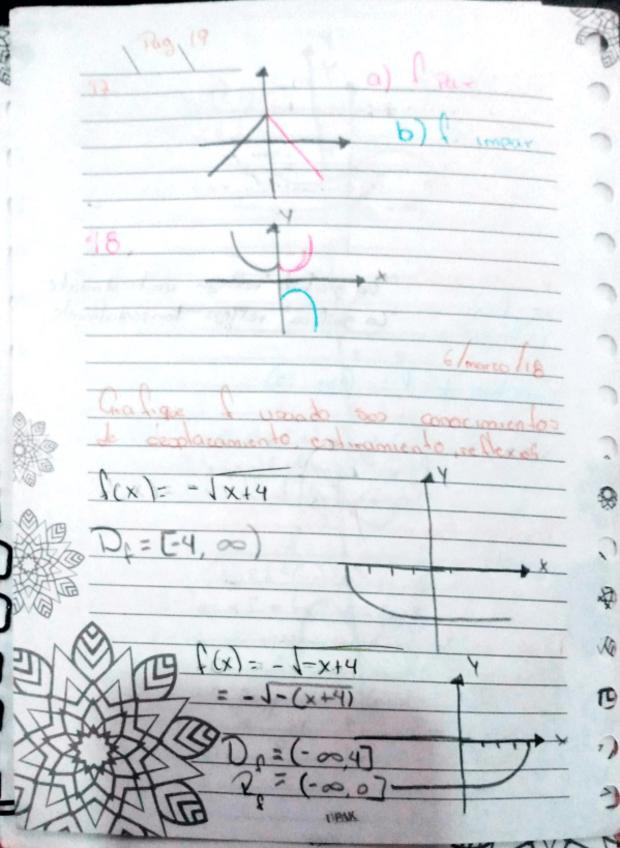 Pag 19
17
a) f par
b) f impar
18.
Y
x
6/marzo/18
Grafique f usando sus conocimientos
de desplazamiento, estiramiento, reflexos.
f(x) = -√x+4
Y
D_f = [-4, ∞)
x
f(x) = -√-x+4
Y
= -√-(x+4)
D_f = (-∞,4]
x
R_f = (-∞,0]